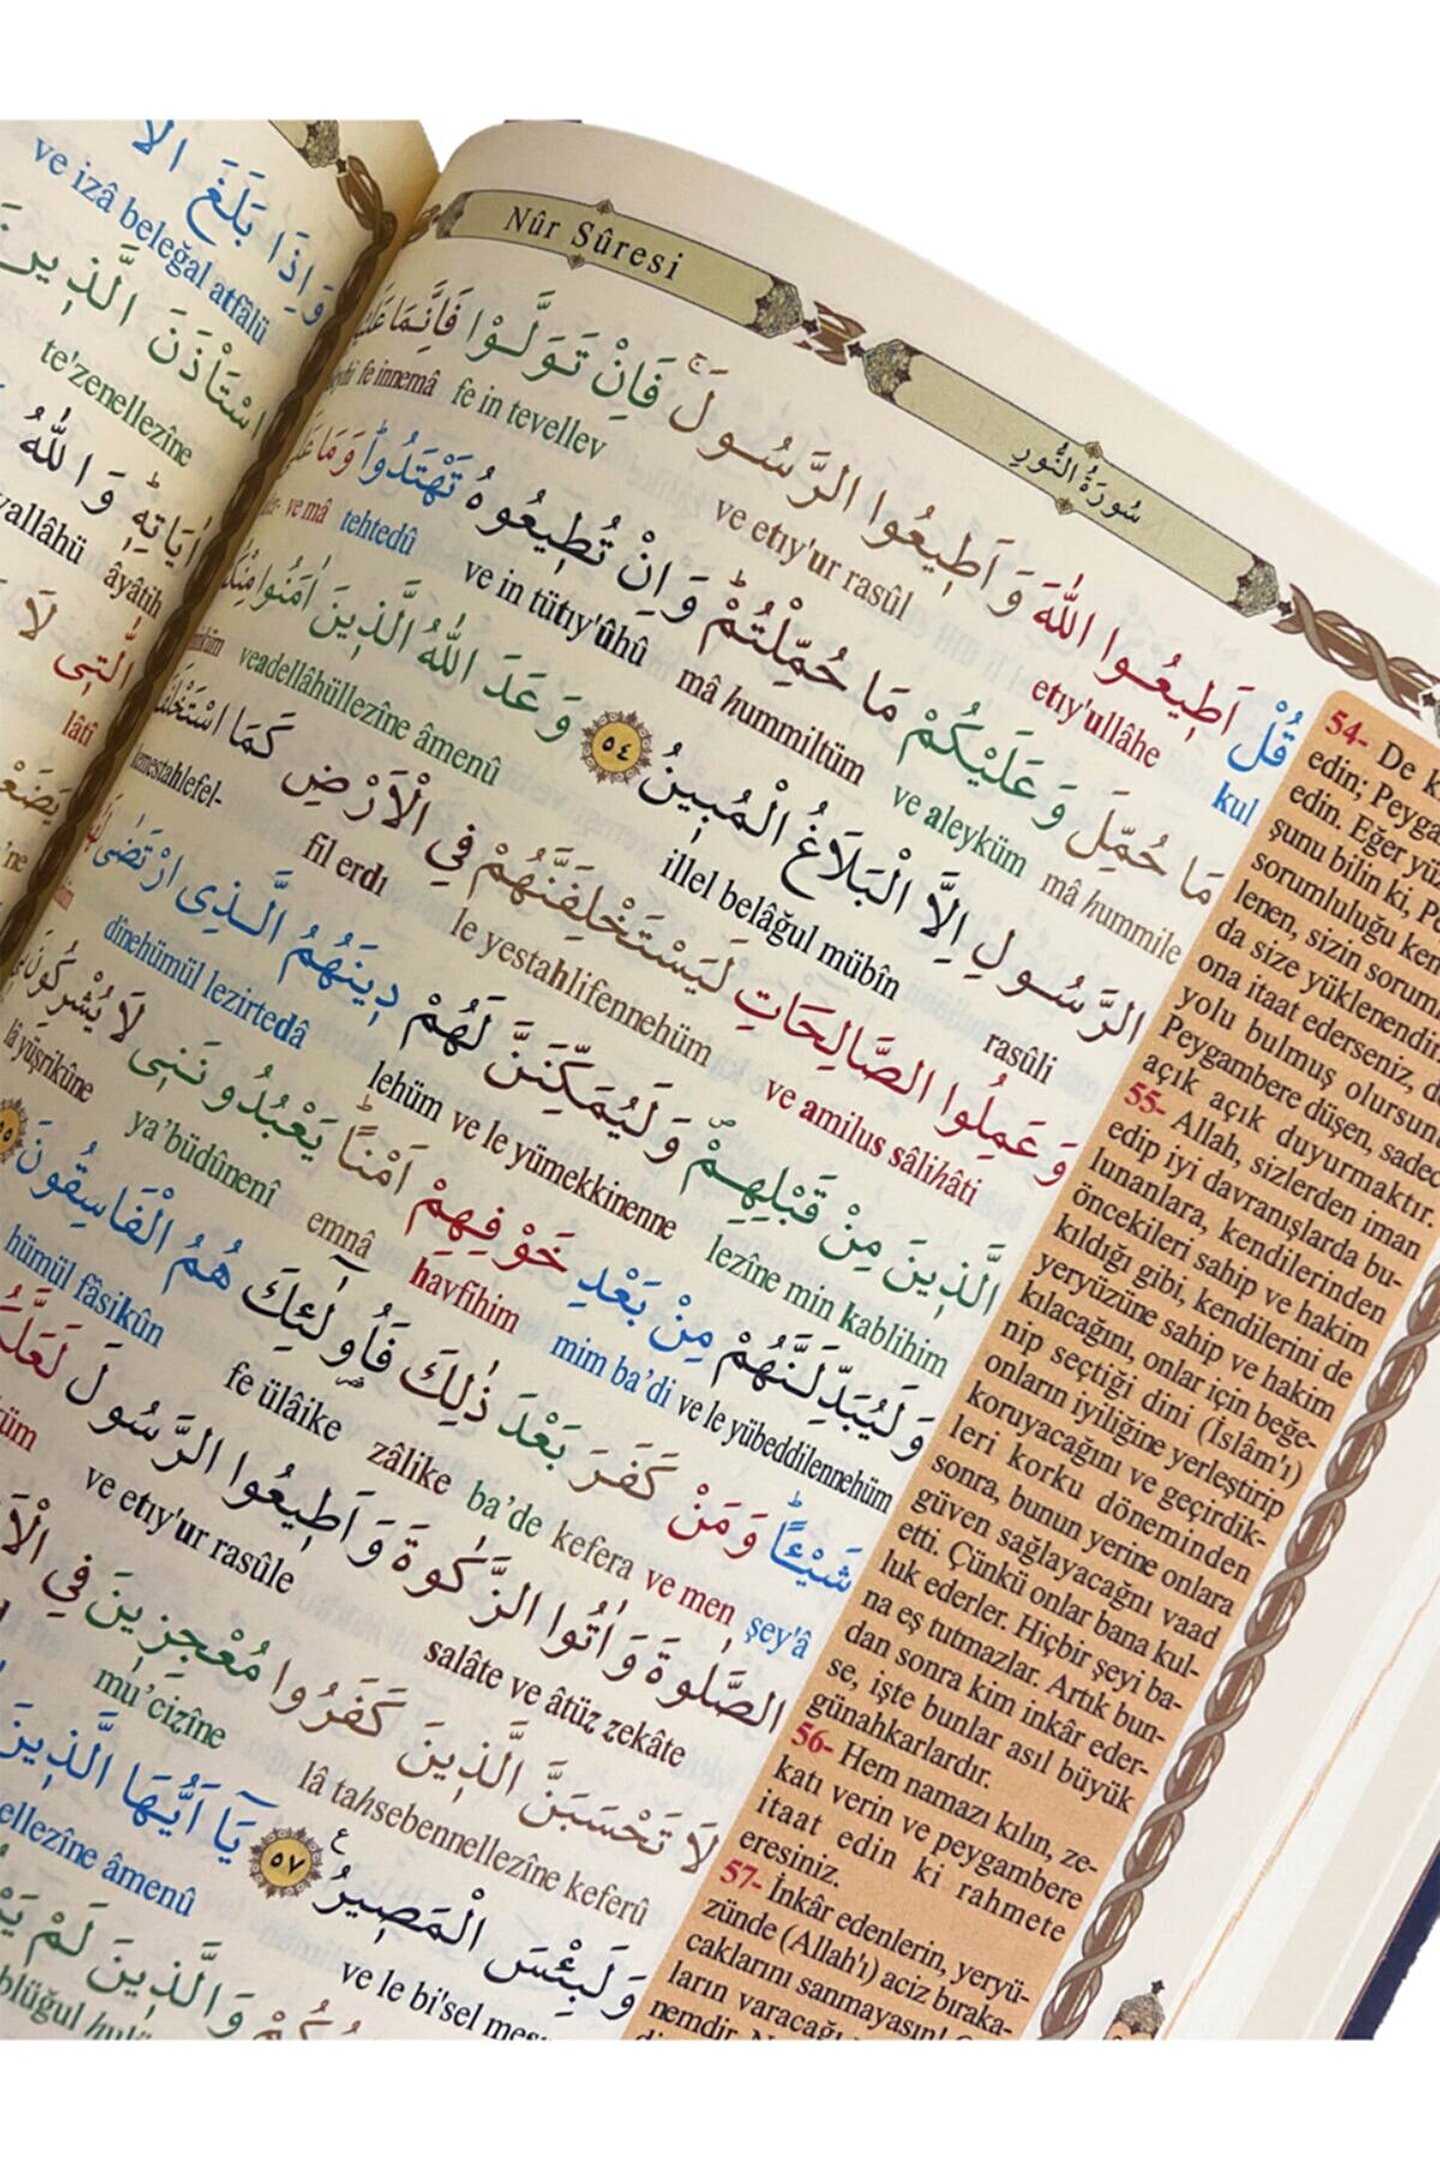 وَاِذَا بَلَغَ
ve izâ beleğal atfâlü
اسْتَأْذَنَ الَّذِينَ
te'zenellezîne
اٰيَاتِهٖؕ وَاللّٰهُ
âyâtih
الّٰتٖى لَا
lâtî
Nûr Sûresi
سُورَةُ النُّورِ
قُلْ اَطٖيعُوا اللّٰهَ وَاَطٖيعُوا الرَّسُولَۚ فَاِنْ تَوَلَّوْا فَاِنَّمَا
kul etıy'ullâhe ve etıy'ur rasûl fe in tevellev fe innemâ
مَا حُمِّلَ وَعَلَيْكُمْ مَا حُمِّلْتُمْؕ وَاِنْ تُطٖيعُوهُ تَهْتَدُواؕ وَمَا
mâ hummile ve aleyküm mâ hummiltüm ve in tütıy'ûhû tehtedû ve mâ
الرَّسُولِ اِلَّا الْبَلَاغُ الْمُبٖينُ ٥٤ وَعَدَ اللّٰهُ الَّذٖينَ اٰمَنُوا
rasûli illel belâğul mübîn veadellâhüllezîne âmenû
وَعَمِلُوا الصَّالِحَاتِ لَيَسْتَخْلِفَنَّهُمْ فِي الْاَرْضِ كَمَا
ve amilus sâlihâti le yestahlifennehüm fil erdı
الَّذٖينَ مِنْ قَبْلِهِمْ وَلَيُمَكِّنَنَّ لَهُمْ دٖينَهُمُ الَّذِى ارْتَضٰى
lezîne min kablihim ve le yümekkinenne lehüm dînehümül lezirtedâ
وَلَيُبَدِّلَنَّهُمْ مِنْ بَعْدِ خَوْفِهِمْ اَمْنًاؕ يَعْبُدُونَنٖى لَا يُشْرِكُونَ
ve le yübeddilennehüm mim ba'di havfihim emnâ ya'büdûnenî lâ yüşrikûne
شَيْـًٔاؕ وَمَنْ كَفَرَ بَعْدَ ذٰلِكَ فَاُولٰٓئِكَ هُمُ الْفَاسِقُونَ ٥٥
şey'â ve men kefera ba'de zâlike fe ülâike hümül fâsikûn
الصَّلٰوةَ وَاٰتُوا الزَّكٰوةَ وَاَطٖيعُوا الرَّسُولَ
salâte ve âtüz zekâte ve etıy'ur rasûle
لَا تَحْسَبَنَّ الَّذٖينَ كَفَرُوا مُعْجِزٖينَ فِي
lâ tahsebennellezîne keferû mu'cizîne
وَلَبِئْسَ الْمَصٖيرُ ٥٧ يَٓا اَيُّهَا الَّذٖينَ
ve le bi'sel ellezîne âmenû
وَالَّذٖينَ لَمْ
54- De
edin;
edin. Eğer
şunu bilin ki,
sorumluluğu
lenen, sizin
da size yüklenendir.
ona itaat ederseniz,
yolu bulmuş
Peygambere düşen, sadece
açık açık duyurmaktır.
55- Allah, sizlerden iman
edip iyi davranışlarda bu-
lunanlara, kendilerinden
öncekileri sahip ve hakim
kıldığı gibi, kendilerini de
yeryüzüne sahip ve hakim
kılacağını, onlar için beğe-
nip seçtiği dini (İslâm'ı)
onların iyiliğine yerleştirip
koruyacağını ve geçirdik-
leri korku döneminden
sonra, bunun yerine onlara
güven sağlayacağını vaad
etti. Çünkü onlar bana kul-
luk ederler. Hiçbir şeyi ba-
na eş tutmazlar. Artık bun-
dan sonra kim inkâr eder-
se, işte bunlar asıl büyük
günahkarlardır.
56- Hem namazı kılın, ze-
katı verin ve peygambere
itaat edin ki rahmete
eresiniz.
57- İnkâr edenlerin, yeryü-
zünde (Allah'ı) aciz bıraka-
caklarını sanmayasın!
ların varacağı
nemdir.